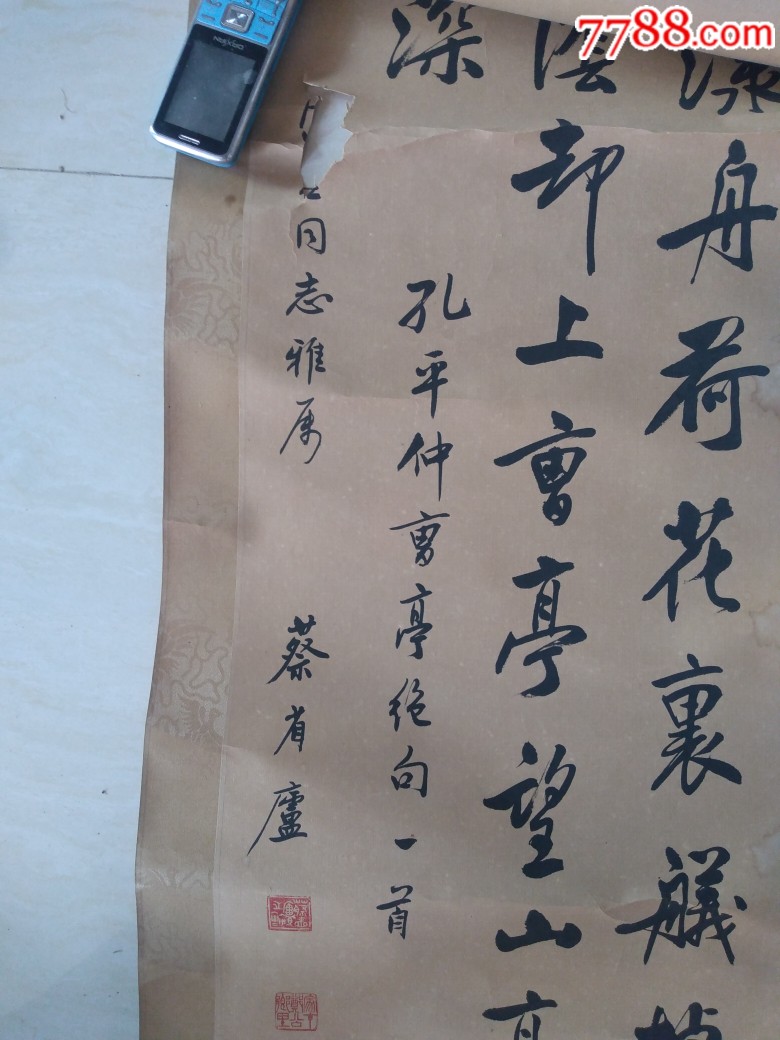 7788.com
舟荷花裏艤
陰却上曹亭望山
深
孔平仲曹亭絶句一首
同志雅属
蔡省廬